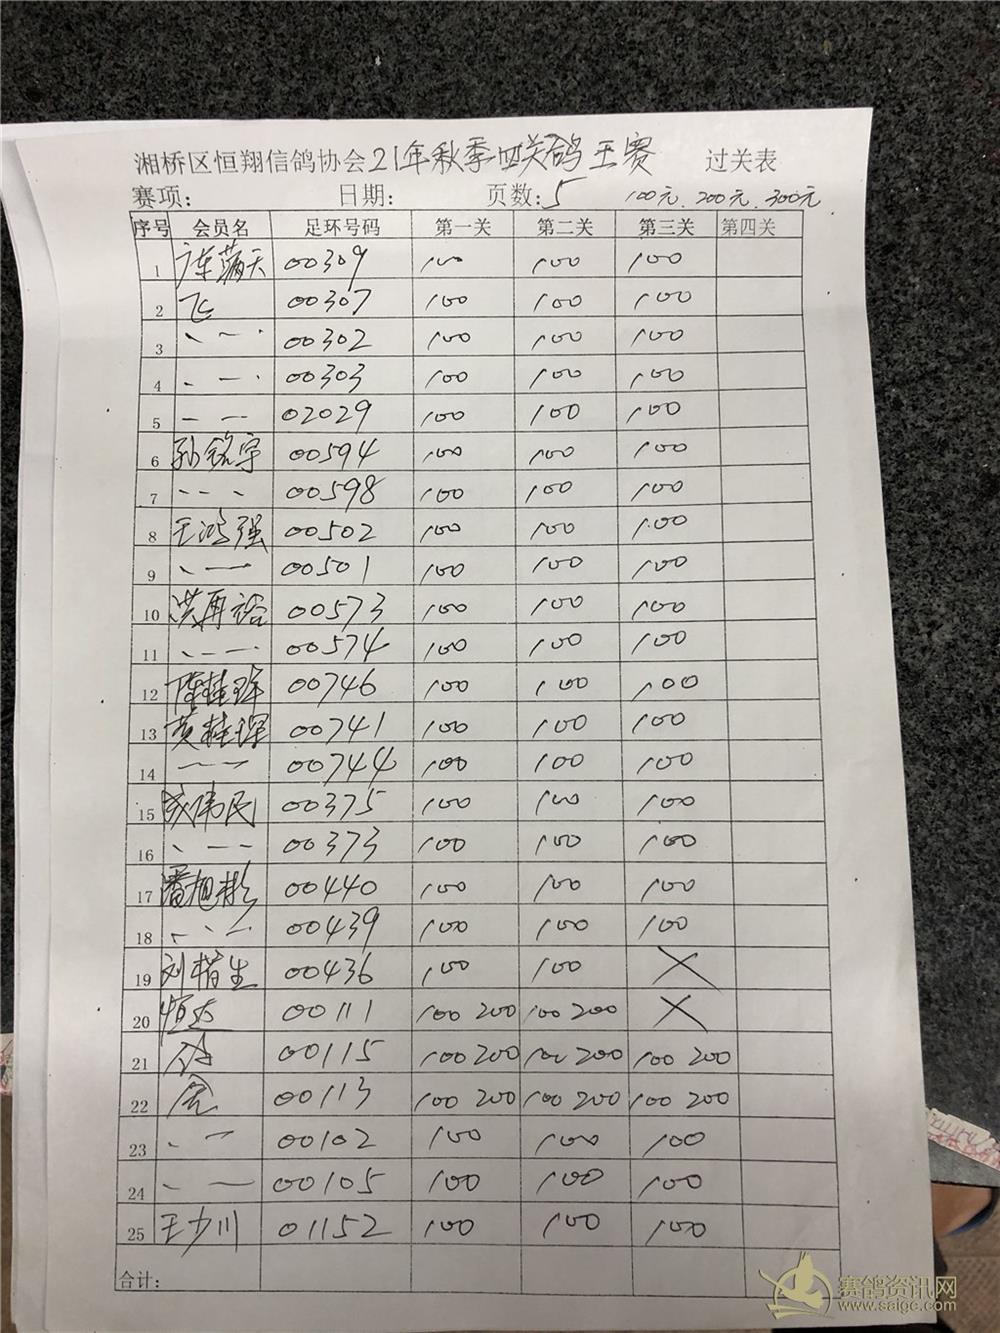 湘桥区恒翔信鸽协会21年秋季四关鸽王赛 过关表
赛项: 日期: 页数:5 100元.200元.300元
序号 会员名 足环号码 第一关 第二关 第三关 第四关
1 满天 00309 100 100 100
2 飞 00307 100 100 100
3 、一· 00302 100 100 100
4 、一· 00303 100 100 100
5 一一 02029 100 100 100
6 孙铭宇 00594 100 100 100
7 、一、 00598 100 100 100
8 王鸿强 00502 100 100 100
9 、一 00501 100 100 100
10 洪再裕 00573 100 100 100
11 、一一 00574 100 100 100
12 陈桂 00746 100 100 100
13 黄桂琛 00741 100 100 100
14 一一 00744 100 100 100
15 伟民 00375 100 100 100
16 、一一 00373 100 100 100
17 潘旭彬 00440 100 100 100
18 、、一 00439 100 100 100
19 刘楷生 00436 100 100 ×
20 恒达 00111 100 200 100 200 ×
21 00115 100 200 100 200 100 200
22 00113 100 200 100 200 100 200
23 、一 00102 100 100 100
24 、一 00105 100 100 100
25 王少川 01152 100 100 100
合计:
赛鸽资讯网
www.saigc.com